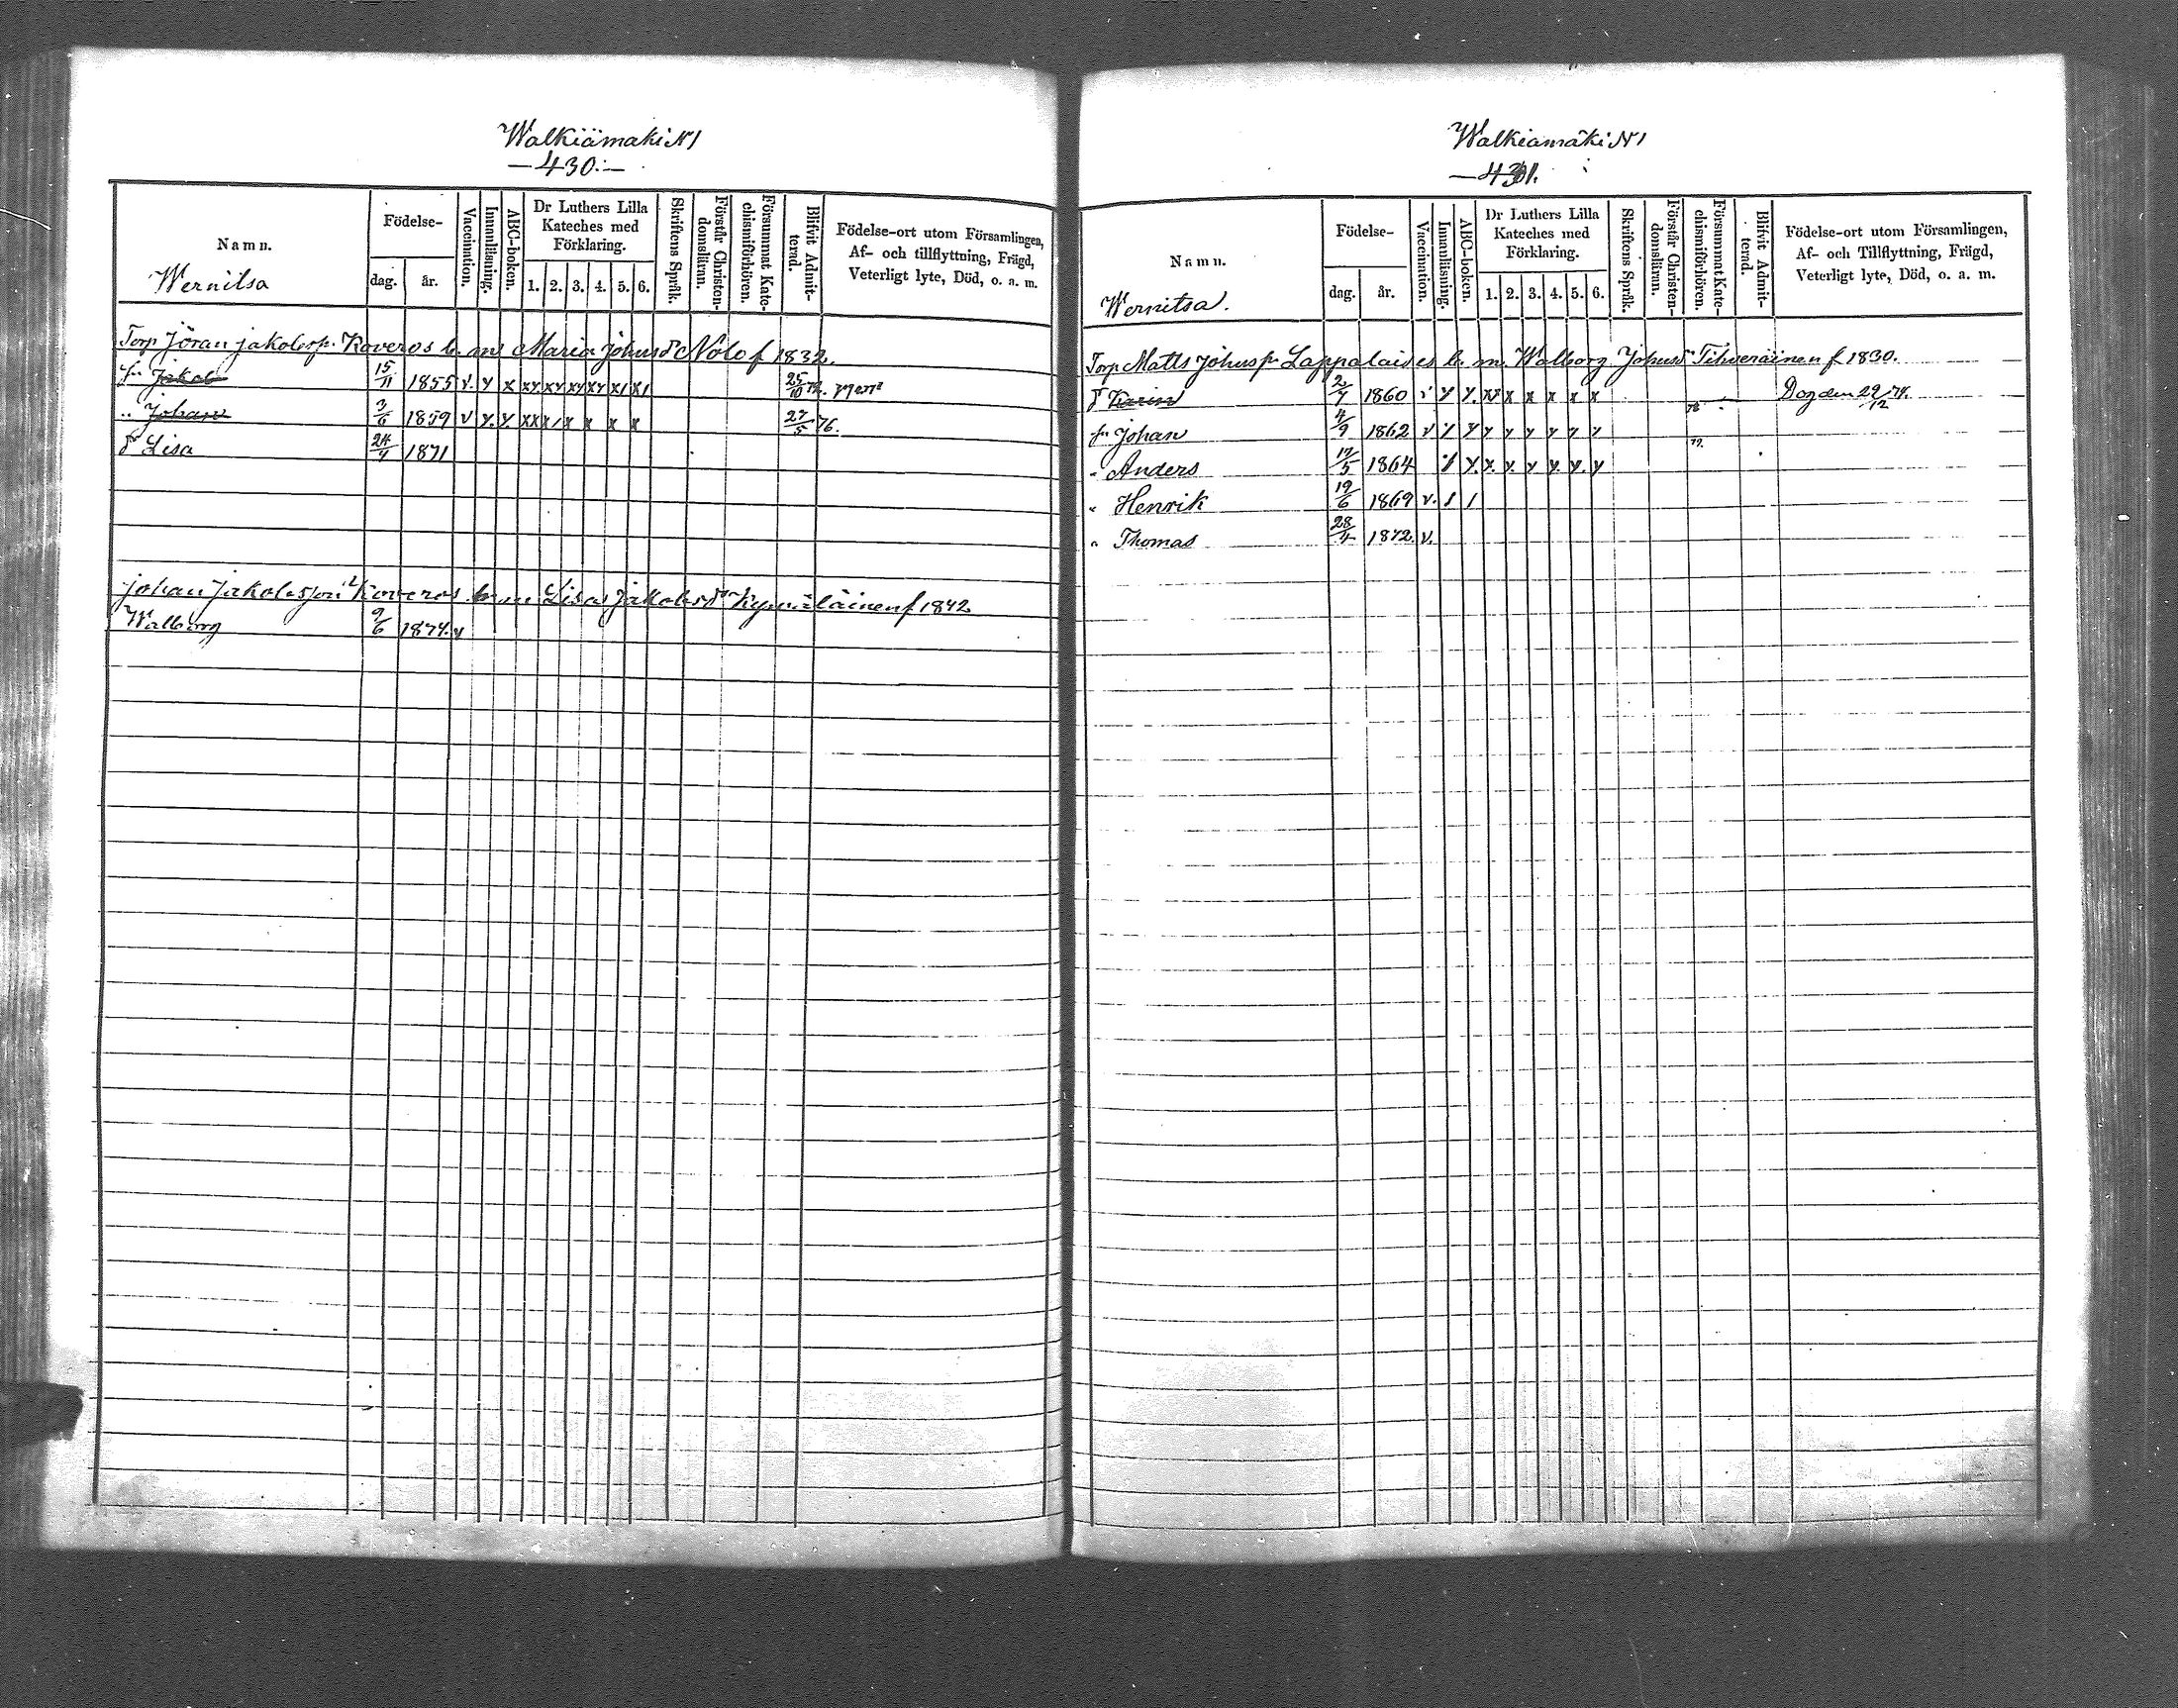 Walkiämäki N1
—430.—
Namn.
Wernitsa
Födelse-
dag.
år.
Vaccination.
Innanläsning.
ABC-boken.
Dr Luthers Lilla
Kateches med
Förklaring.
1. 2. 3. 4. 5. 6.
Skriftens Språk.
Förstår Christen-
domsläran.
Försummat Kate-
chismiförhören.
Blifvit Admit-
terad.
Födelse-ort utom Församlingen,
Af- och tillflyttning, Frägd,
Veterligt lyte, Död, o. a. m.
Torp Jöran Jakobsp. Koveros b. m. Maria Johusdr Nolo f 1832.
sn Jakob 15/11 1855 v. y x xy xy xy xy x1 x1 25/10
" Johan 3/6 1859 v y. y xx x/ x x x x 27/5 76.
dr Lisa 24/4 1871
Johan Jakobsson Koveros b. m Lisa Jakobsdr Kymäläinen f 1842
Walborg 9/6 1874. v
Walkiamäki N1
—431.
Namn.
Wernitsa.
Födelse-
dag.
år.
Vaccination.
Innanläsning.
ABC-boken.
Dr Luthers Lilla
Kateches med
Förklaring.
1. 2. 3. 4. 5. 6.
Skriftens Språk.
Förstår Christen-
domsläran.
Försummat Kate-
chismiförhören.
Blifvit Admit-
terad.
Födelse-ort utom Församlingen,
Af- och Tillflyttning, Frägd,
Veterligt lyte, Död, o. a. m.
Torp Matts Johusp. Lappalais es b. m. Walborg Johusdr Tihveräinen f. 1830.
dr Karin 2/7 1860 y y. xx x x x x x Dog den 29/12 74.
sn Johan 4/9 1862 v y y y y y y y y 78
" Anders 17/5 1864 y y. y. y. y y. y. y 79.
" Henrik 19/6 1869 v. / /
" Thomas 28/4 1872 v.